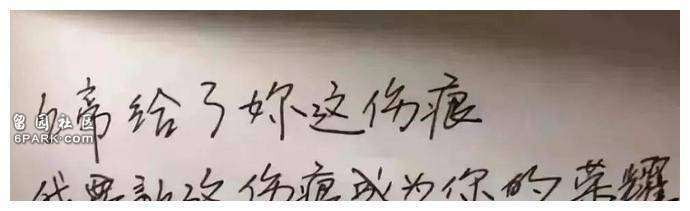 上帝给了妳这伤痕
伤痕成为你的荣耀
留园社区
6PARK.COM